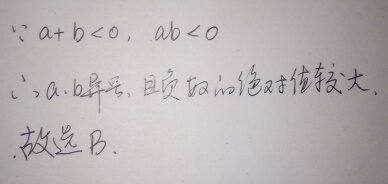 ∵ a+b<0, ab<0
∴ a、b异号, 且负数的绝对值较大,
故选B.